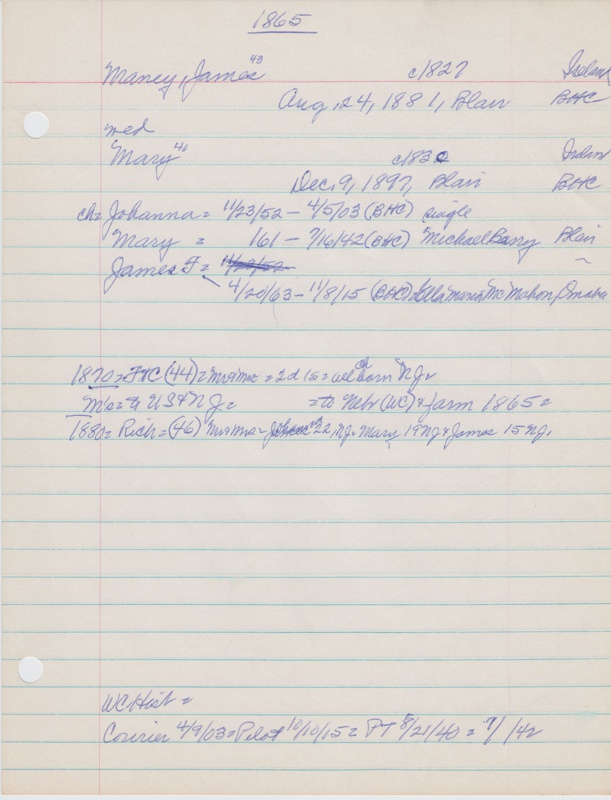 1865
Maney, James 43 c1827 Ireland
Aug. 24, 1881, Blair BHC
med
Mary 40 c1830 Irelan
Dec. 9, 1897, Blair BHC
ch = Johanna = 11/23/52 - 4/5/03 (BHC) single
Mary = /61 - 7/16/42 (BHC) Michael Barry Blair
James F = 11/23/52
4/20/63 - 11/8/15 (BHC) Ella Maria McMahon, Omaha
1870 = FtC (44) = Mr & Mrs = 2d 1s = all ch born NJ.
M/c = to US & NJ = = to Nebr (WC) & farm 1865 =
1880 = Rich = (46) Mr & Mrs = 22, NJ. Mary 19 NJ & James 15 NJ.
WC Hist =
Courier 4/9/03 = Pilot 10/10/15 = PT 8/21/40 = 7/ /42